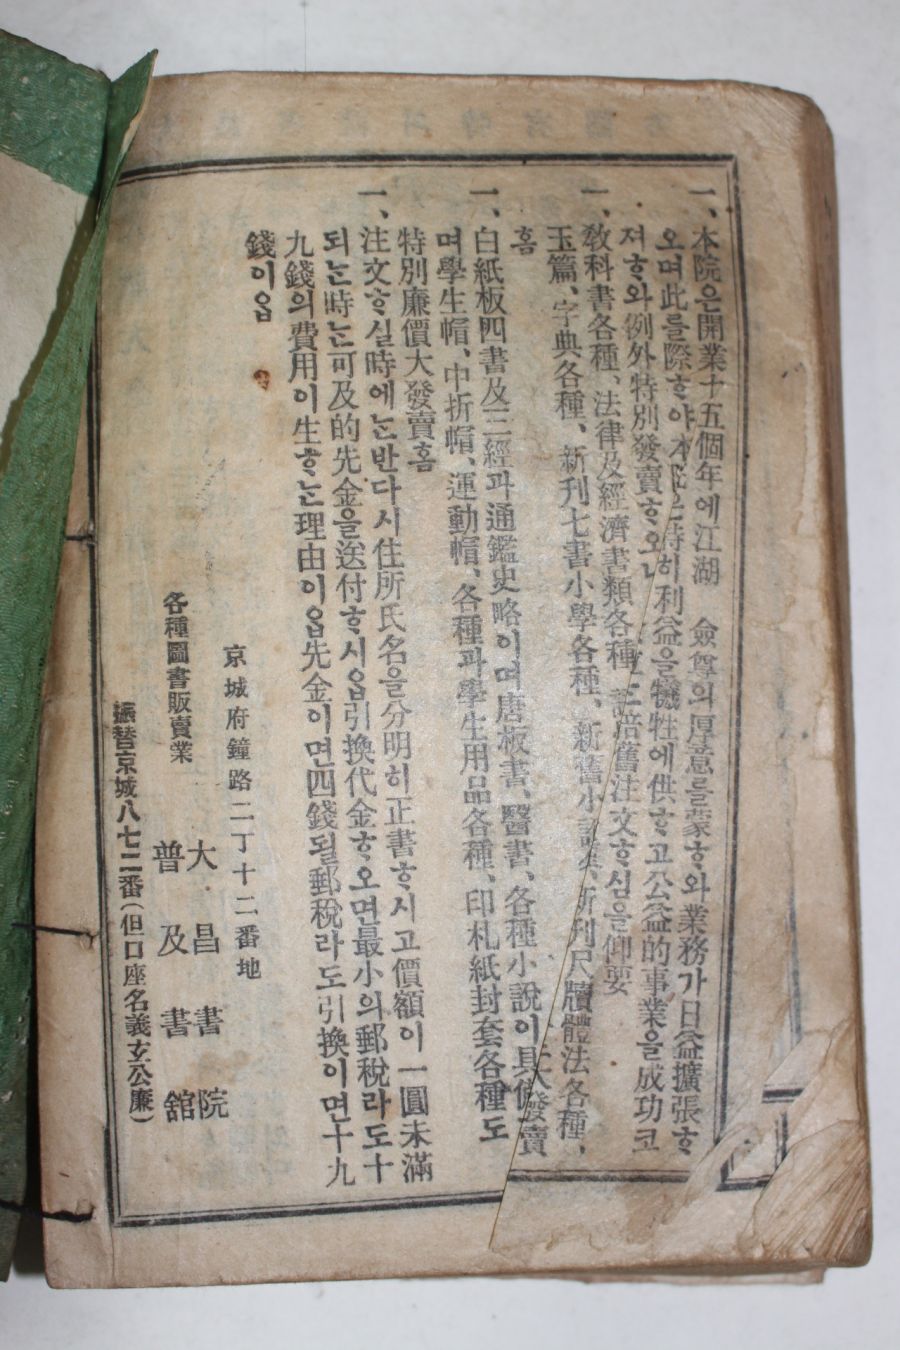 一、本院은開業十五個年에江湖 僉尊의厚意를蒙ᄒᆞ와業務가日益擴張ᄒᆞ
오며此를際ᄒᆞ야 特히利益을犧牲에供ᄒᆞ고公益的事業을成功코
져ᄒᆞ와例外特別發賣ᄒᆞ오니 倍舊注文ᄒᆞ심을仰要
一、敎科書各種、法律及經濟書類各種、
玉篇、字典各種、新刊七書小學各種、新舊小說、新刊尺牘體法各種、
홈
一、白紙板四書及三經과通鑑史略이며唐板書、醫書、各種小說이具備 大發賣
며學生帽、中折帽、運動帽、各種과學生用品各種、印札紙封套各種도
特別廉價大發賣홈
一、注文ᄒᆞ실時에ᄂᆞᆫ반다시住所氏名을分明히正書ᄒᆞ시고價額이一圓未滿
되ᄂᆞᆫ時ᄂᆞᆫ可及的先金을送付ᄒᆞ시ᄋᆞᆸ引換代金ᄒᆞ오면最小의郵稅라도十
九錢의費用이生ᄒᆞᄂᆞᆫ理由이ᄋᆞᆸ先金이면四錢될郵稅라도引換이면十九
錢이ᄋᆞᆸ
京城府鐘路二丁十二番地
各種圖書販賣業
大昌書院
普及書舘
振替京城八七二番(但口座名義玄公廉)